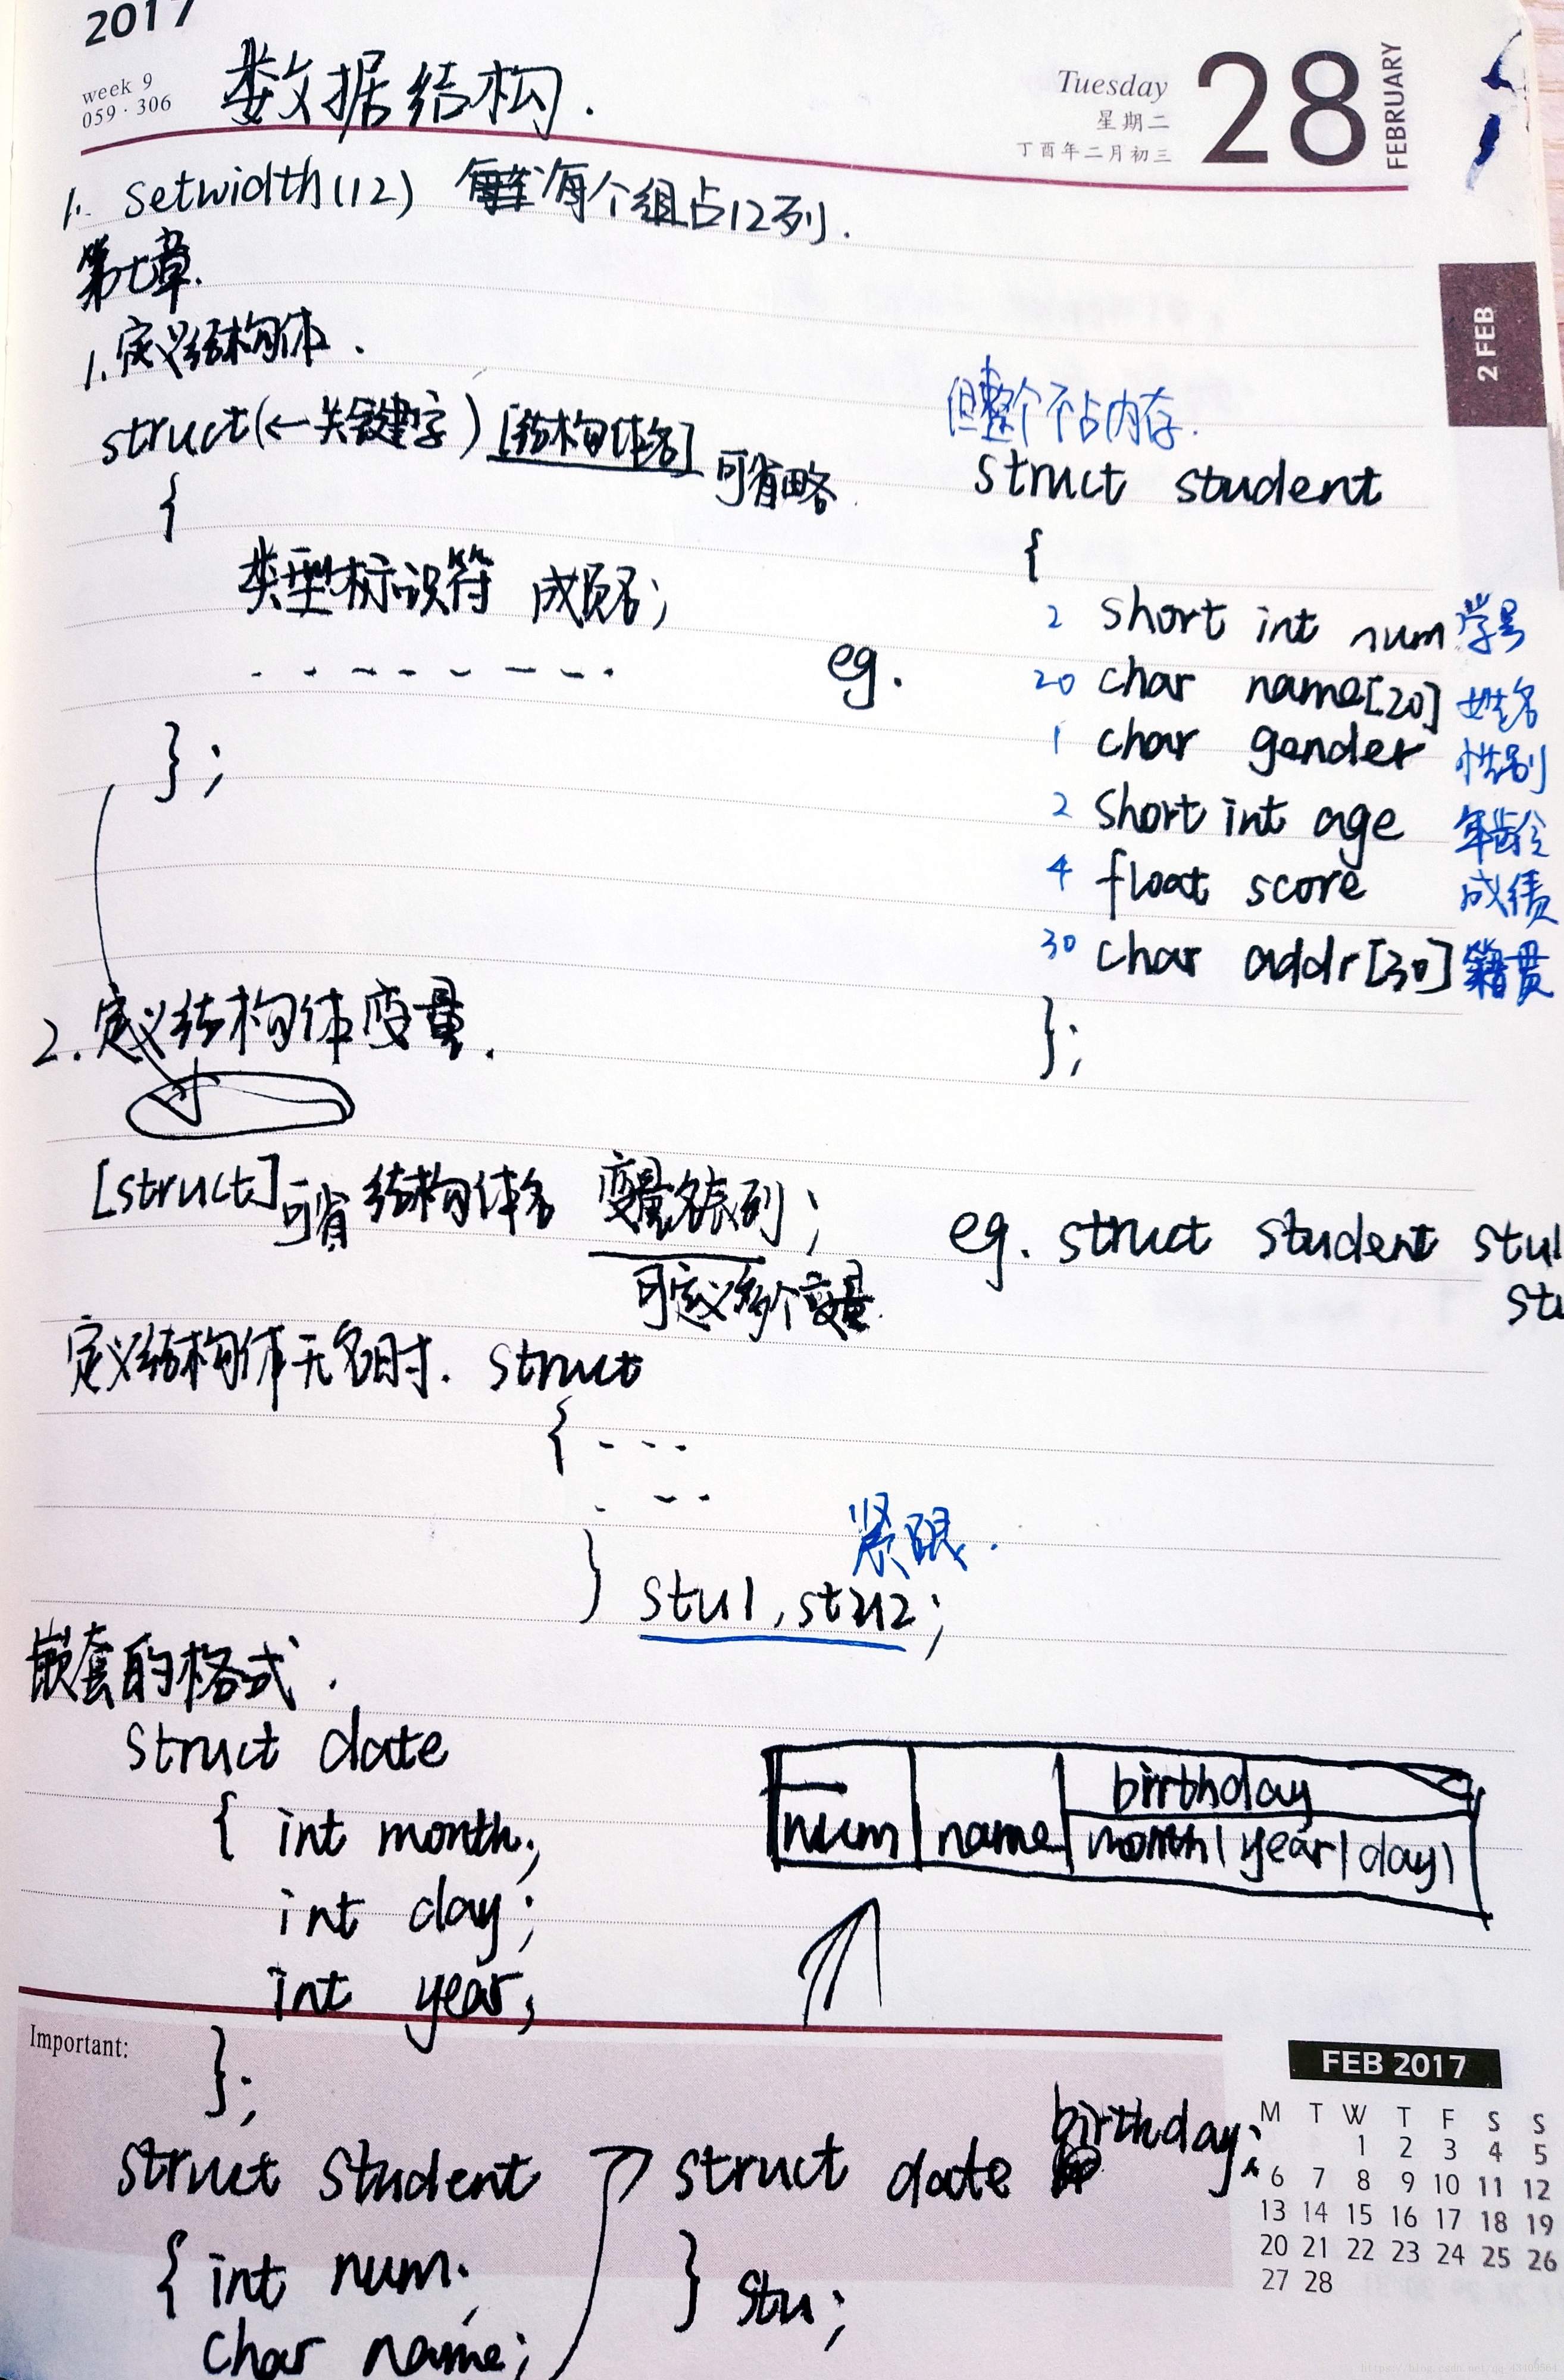 2017
week 9
059 · 306
数据结构.
Tuesday
星期二
丁酉年二月初三
28
FEBRUARY
1. setwidth(12) 每个组占12列.
第七章.
2 FEB
1.定义结构体.
struct(←关键字) [结构体名] 可省略
{
类型标识符 成员名;
};
但整个不占内存.
eg.
struct student
{
2 short int num 学号
20 char name[20] 姓名
1 char gender 性别
2 short int age 年龄
4 float score 成绩
30 char addr[30] 籍贯
};
2.定义结构体变量.
[struct]可省 结构体名 变量名表列;
可定义多个变量.
eg. struct student stu1
stu
定义结构体无名时. struct
{ ---
---
紧跟.
} stu1,stu2;
嵌套的格式.
struct date
{ int month;
int day;
int year;
};
birthday
num name month year day
Important:
struct student
{ int num;
char name;
struct date birthday;
} stu;
FEB 2017
M T W T F S S
1 2 3 4 5
6 7 8 9 10 11 12
13 14 15 16 17 18 19
20 21 22 23 24 25 26
27 28